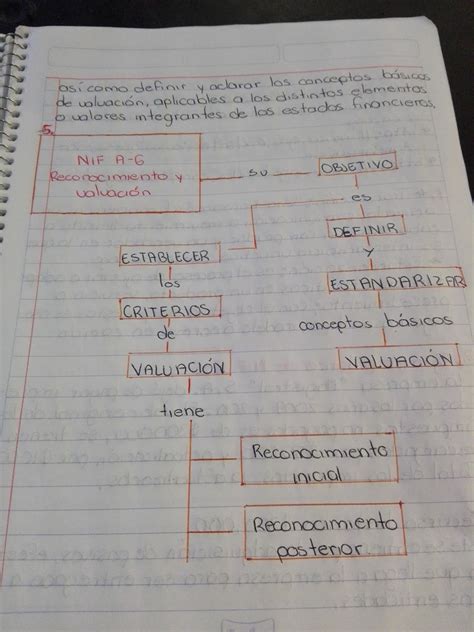 así como definir y aclarar los conceptos básicos
de valuación, aplicables a los distintos elementos
o valores integrantes de los estados financieros.
5.
NIF A-6
Reconocimiento y
valuación
su
OBJETIVO
es
DEFINIR
y
ESTANDARIZAR
conceptos básicos
VALUACIÓN
ESTABLECER
los
CRITERIOS
de
VALUACIÓN
tiene
Reconocimiento
inicial
Reconocimiento
posterior